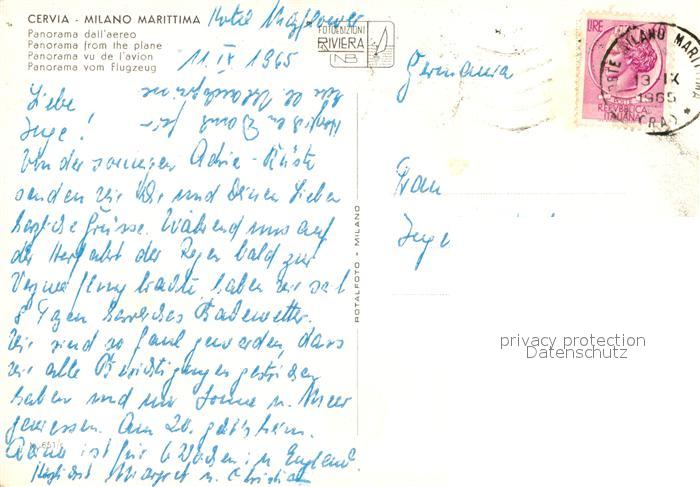 CERVIA - MILANO MARITTIMA
Panorama dall'aereo
Panorama from the plane
Panorama vu de l'avion
Panorama vom Flugzeug
Hotel Mayflower
11 IX 1965
FOTOEDIZIONI
RIVIERA
NB
Liebe
Inge!
Von der sonnigen Adria-Küste
senden wir Dir und Deinen Lieben
herzliche Grüsse. Während uns auf
der Herfahrt der Regen bald zur
Verzweiflung brachte, haben wir seit
8 Tagen herrliches Badewetter.
Wir sind so faul geworden, dass
wir alle Besichtigungen gestrichen
haben und nur Sonne u. Meer
geniessen. Am 20. geht's heim.
ist für 6 Wochen in England.
Herzlichst Margret u. Christian
ROTALFOTO - MILANO
Germania
Frau
Inge
LIRE
POSTE
REPUBBLICA
ITALIANA
POSTE MILANO MARITTIMA
13 IX
1965
(RA)
privacy protection
Datenschutz